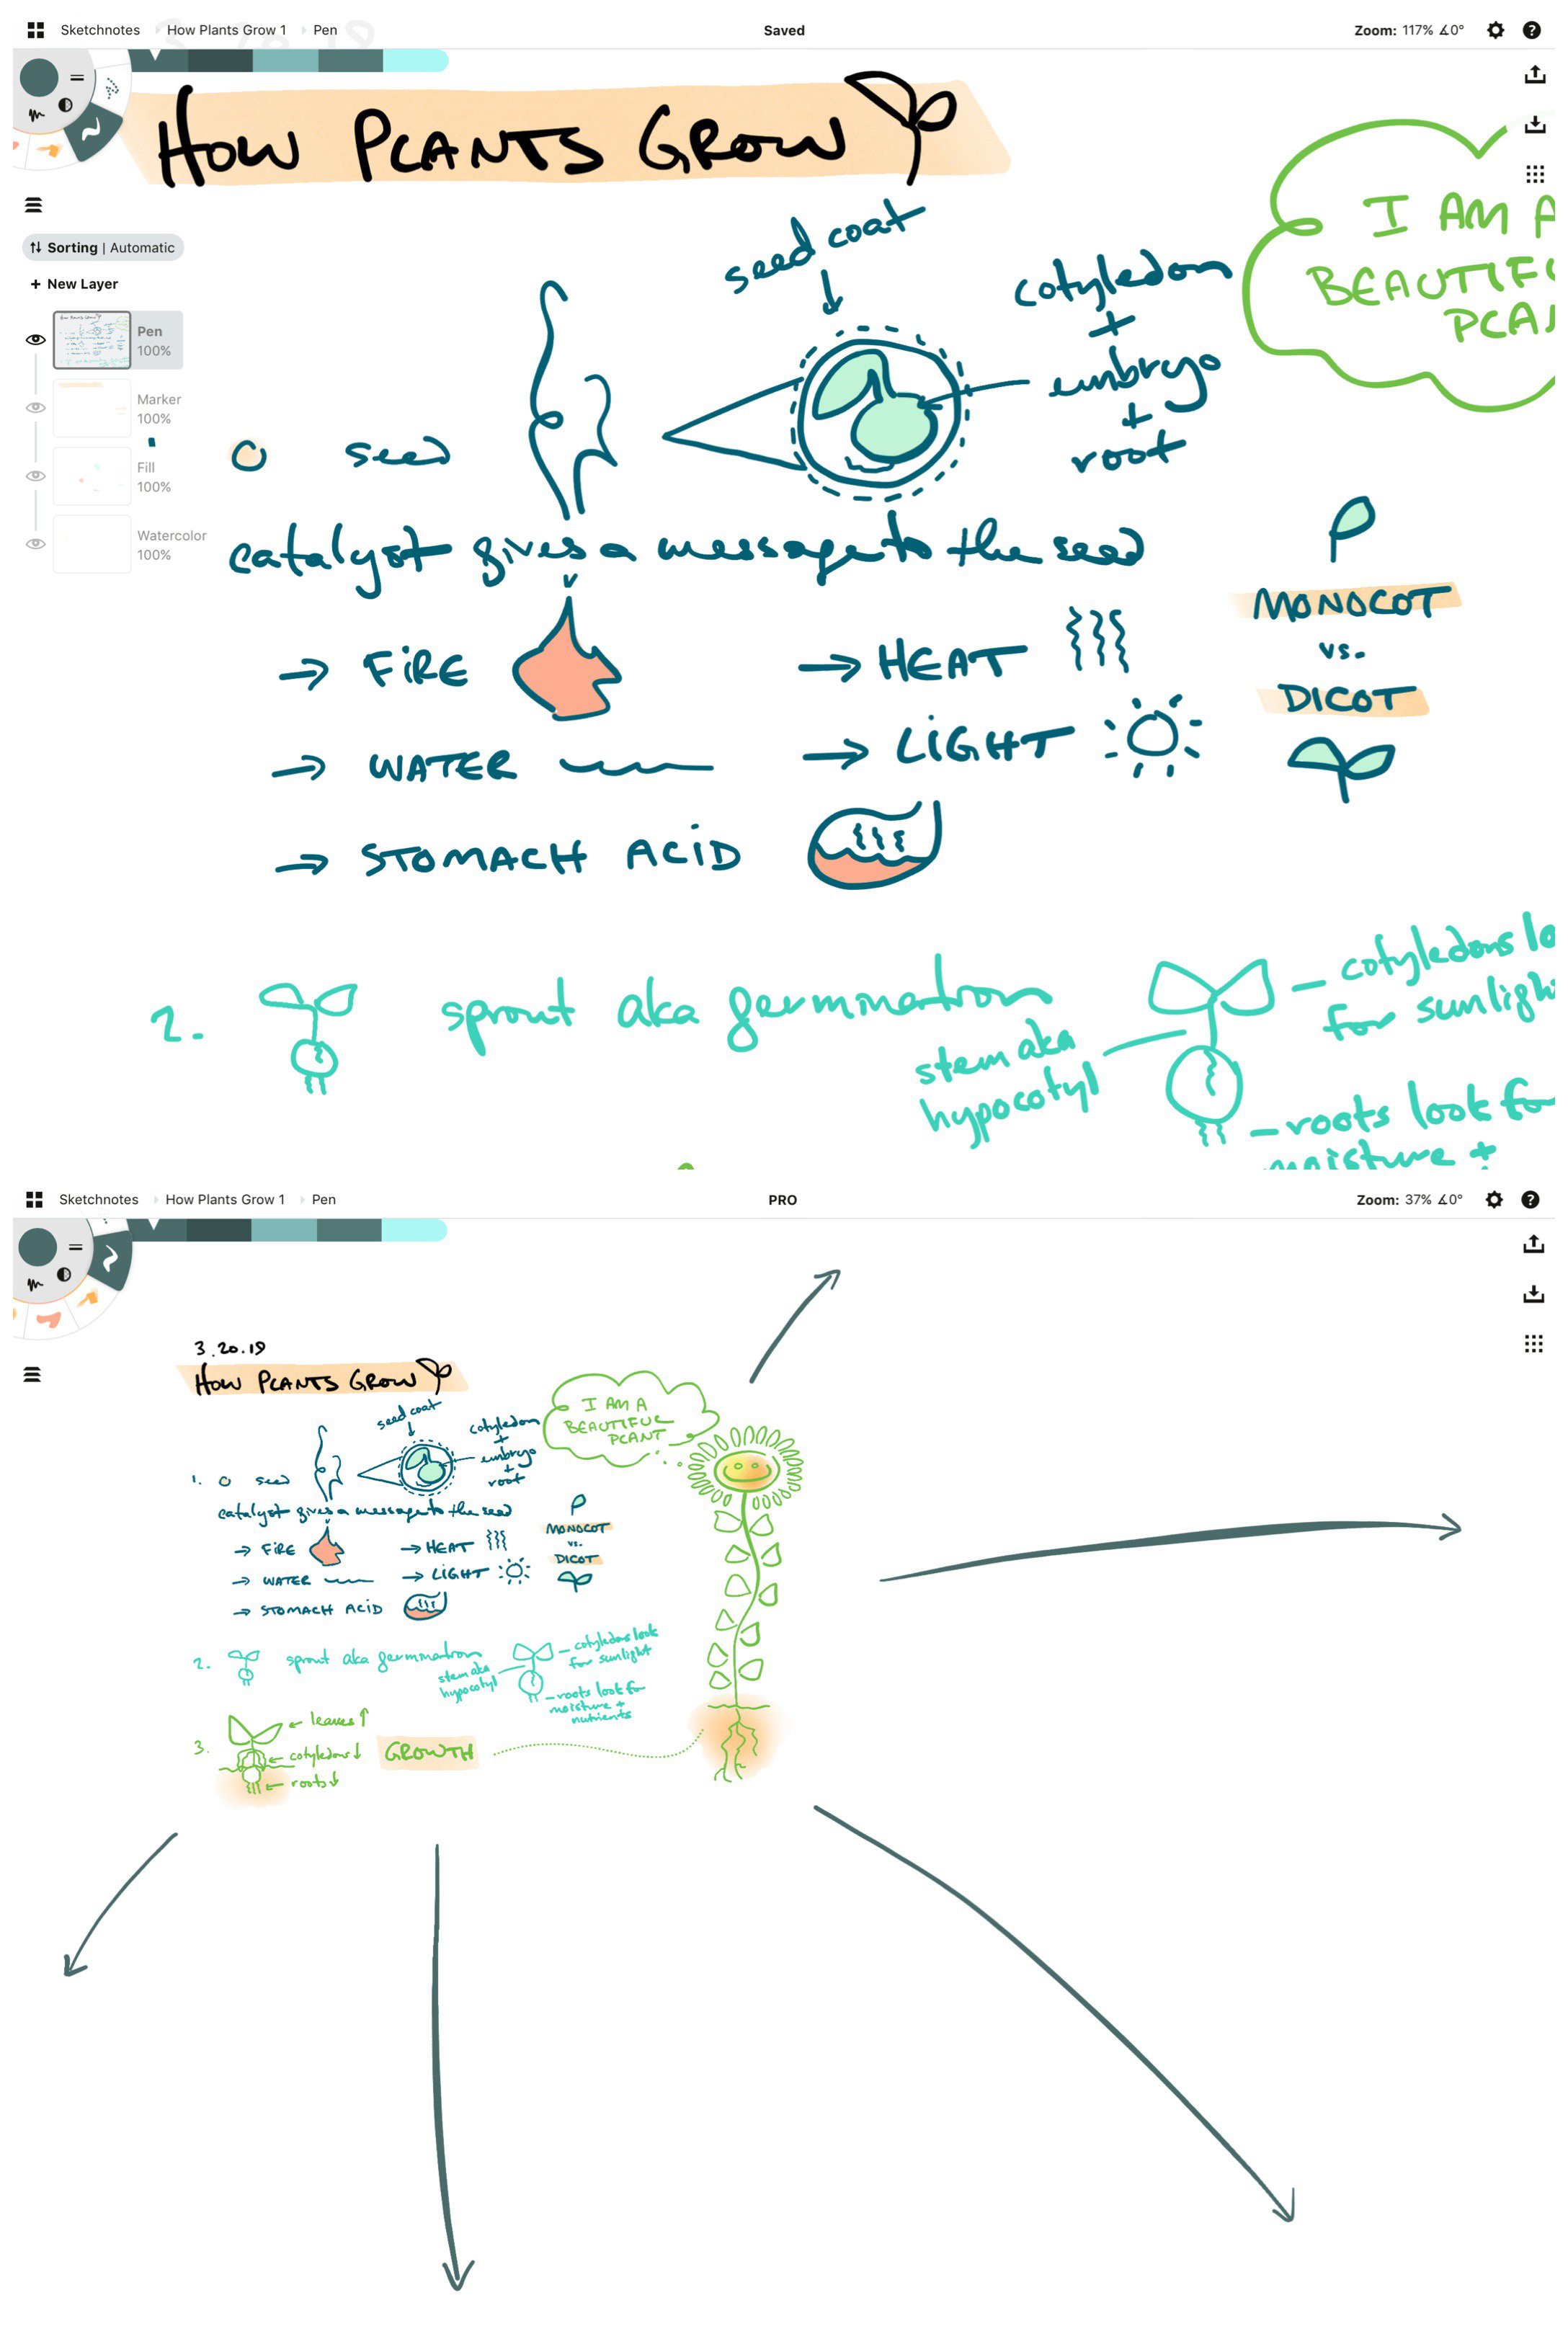 Sketchnotes How Plants Grow 1 Pen
Saved
Zoom: 117% ∡0°
HOW PLANTS GROW
Sorting | Automatic
+ New Layer
Pen
100%
Marker
100%
Fill
100%
Watercolor
100%
seed coat
cotyledon
+
embryo
+
root
I AM A
BEAUTIFU
PLAN
seed
catalyst gives a message to the seed
→ FIRE
→ HEAT
→ WATER
→ LIGHT
→ STOMACH ACID
MONOCOT
vs.
DICOT
2. sprout aka germination
stem aka
hypocotyl
– cotyledons lo
for sunligh
– roots look for
moisture +
Sketchnotes How Plants Grow 1 Pen
PRO
Zoom: 37% ∡0°
3.20.19
HOW PLANTS GROW
seed coat
cotyledon
+
embryo
+
root
I AM A
BEAUTIFUL
PLANT
1. seed
catalyst gives a message to the seed
→ FIRE
→ HEAT
→ WATER
→ LIGHT
→ STOMACH ACID
MONOCOT
vs.
DICOT
2. sprout aka germination
stem aka
hypocotyl
– cotyledons look
for sunlight
– roots look for
moisture +
nutrients
3.
← leaves ↑
← cotyledons ↓
← roots ↓
GROWTH